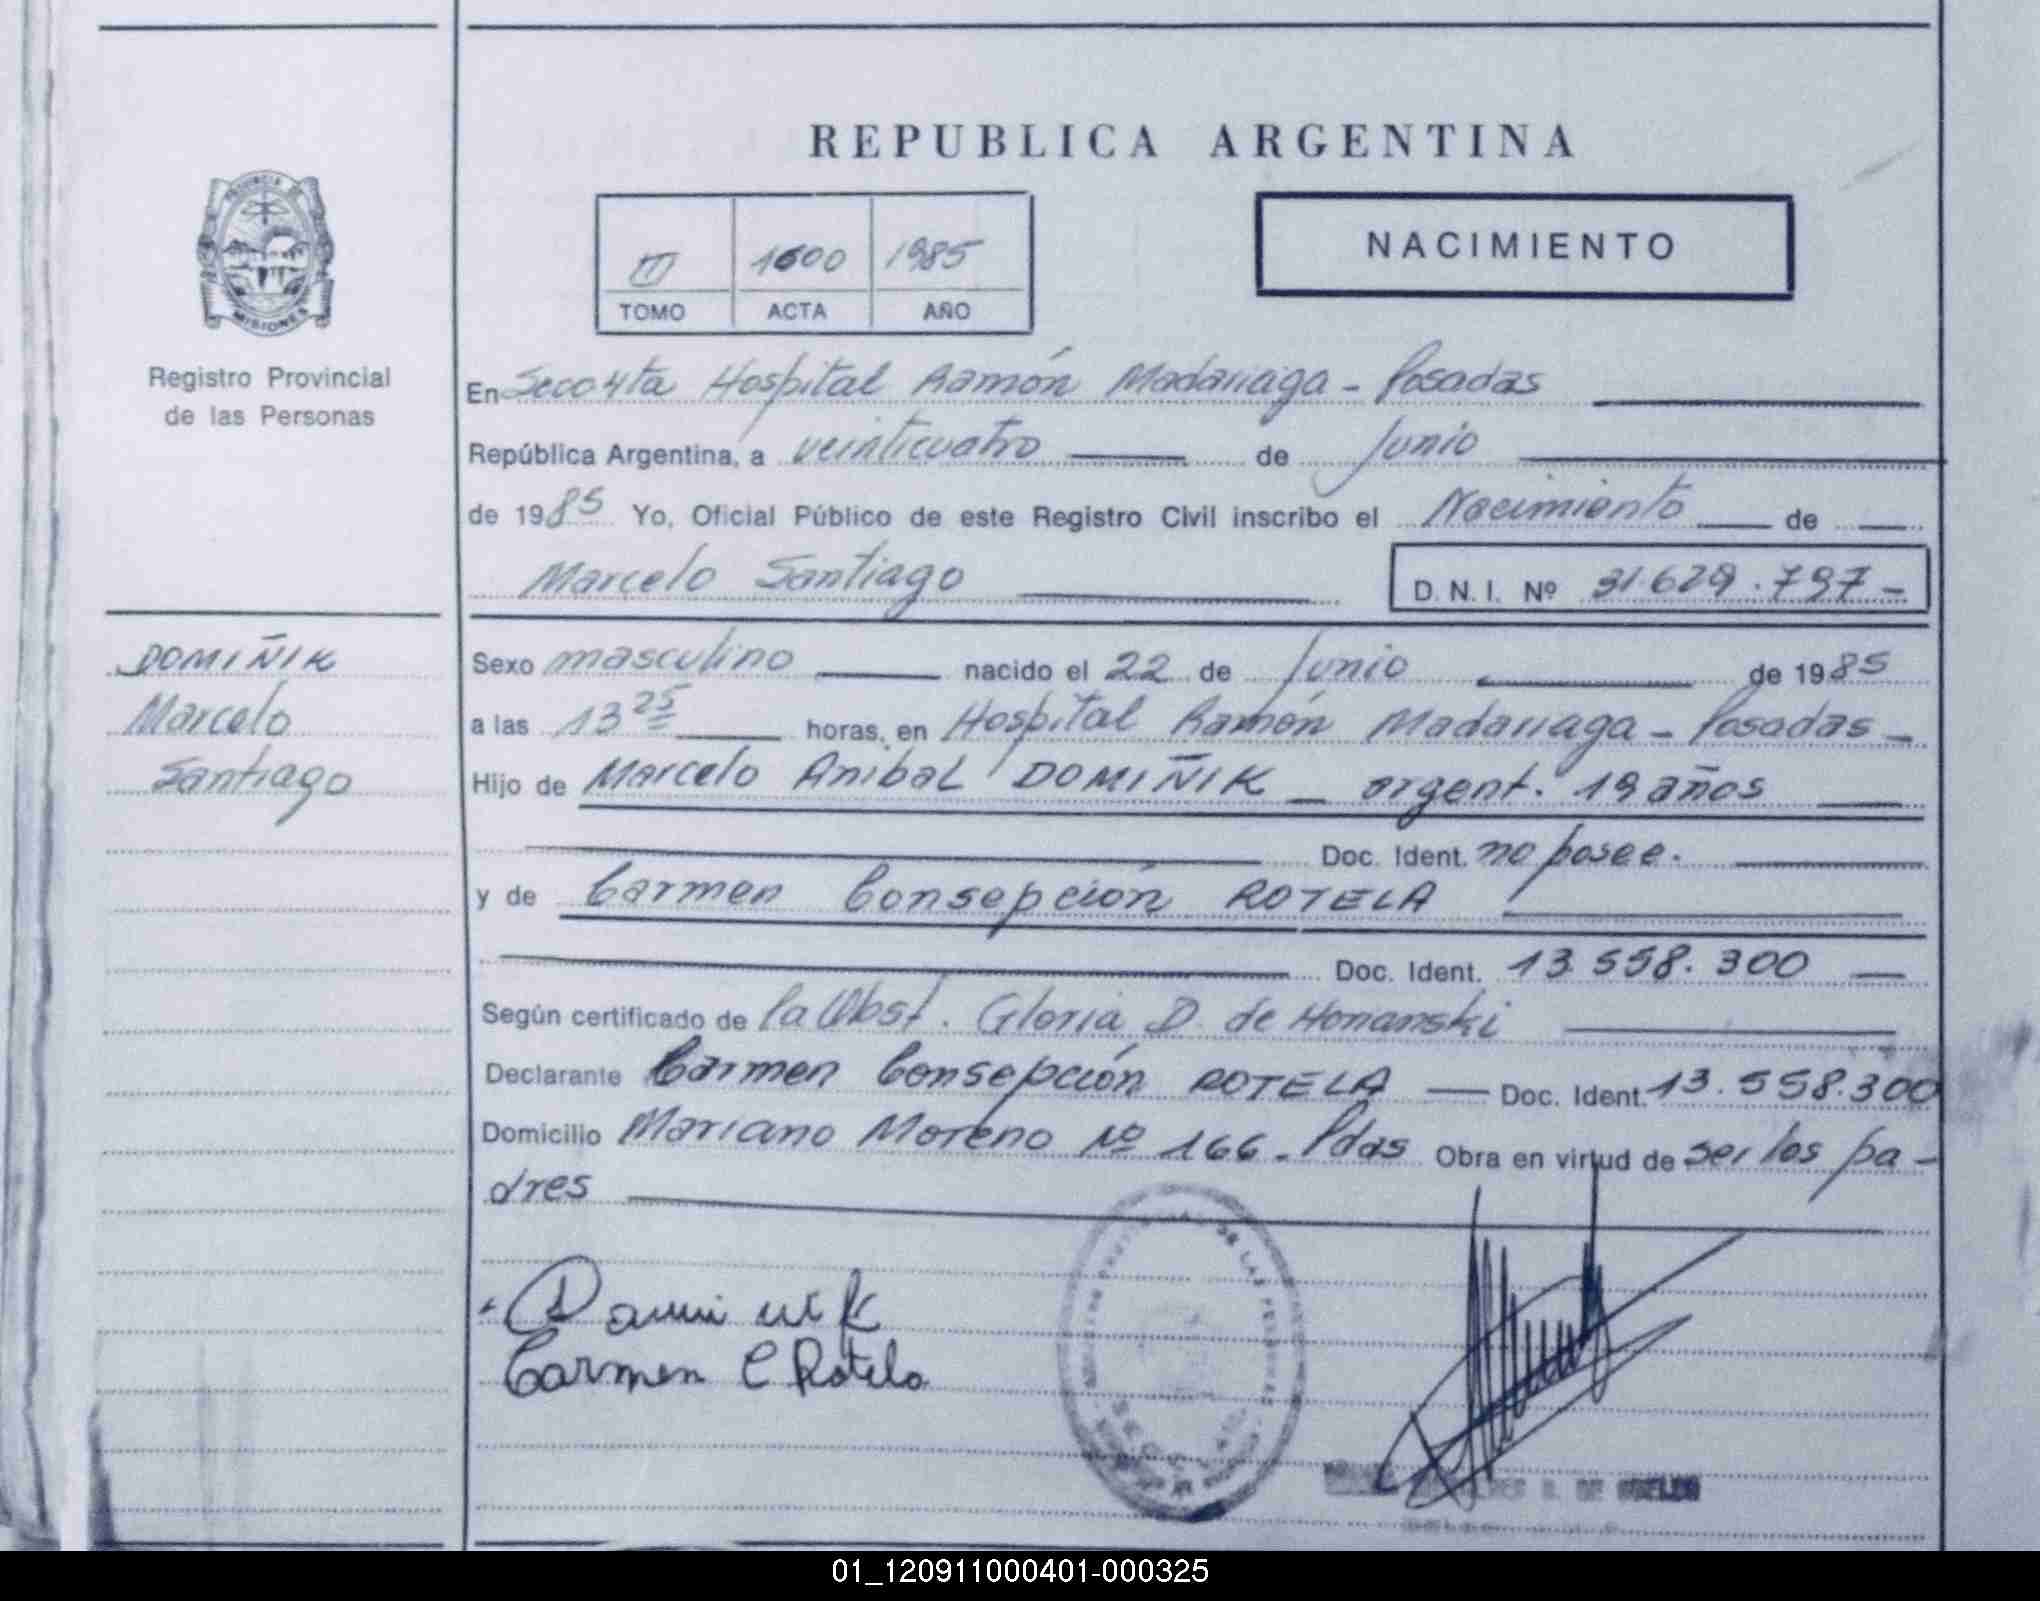 REPUBLICA ARGENTINA
PROVINCIA DE
MISIONES
Registro Provincial
de las Personas
III 1600 1985
TOMO ACTA AÑO
NACIMIENTO
En Hospital Ramón Madariaga - Posadas
República Argentina, a veinticuatro de Junio
de 1985 Yo, Oficial Público de este Registro Civil inscribo el Nacimiento de
Marcelo Santiago D. N. I. Nº 31.629.797-
DOMIÑIK
Marcelo
Santiago
Sexo masculino nacido el 22 de Junio de 1985
a las 13 25 horas, en Hospital Ramón Madariaga - Posadas -
Hijo de Marcelo Anibal DOMIÑIK - argent. 19 años
Doc. Ident. no posee.
y de Carmen Consepción ROTELA
Doc. Ident. 13.558.300
Según certificado de la Obst. Gloria D. de
Declarante Carmen Consepción ROTELA — Doc. Ident. 13.558.300
Domicilio Mariano Moreno Nº 166 - Pdas Obra en virtud de ser los pa-
dres
Dominik
Carmen C Rotela
DE LAS PERSONAS
01_120911000401-000325